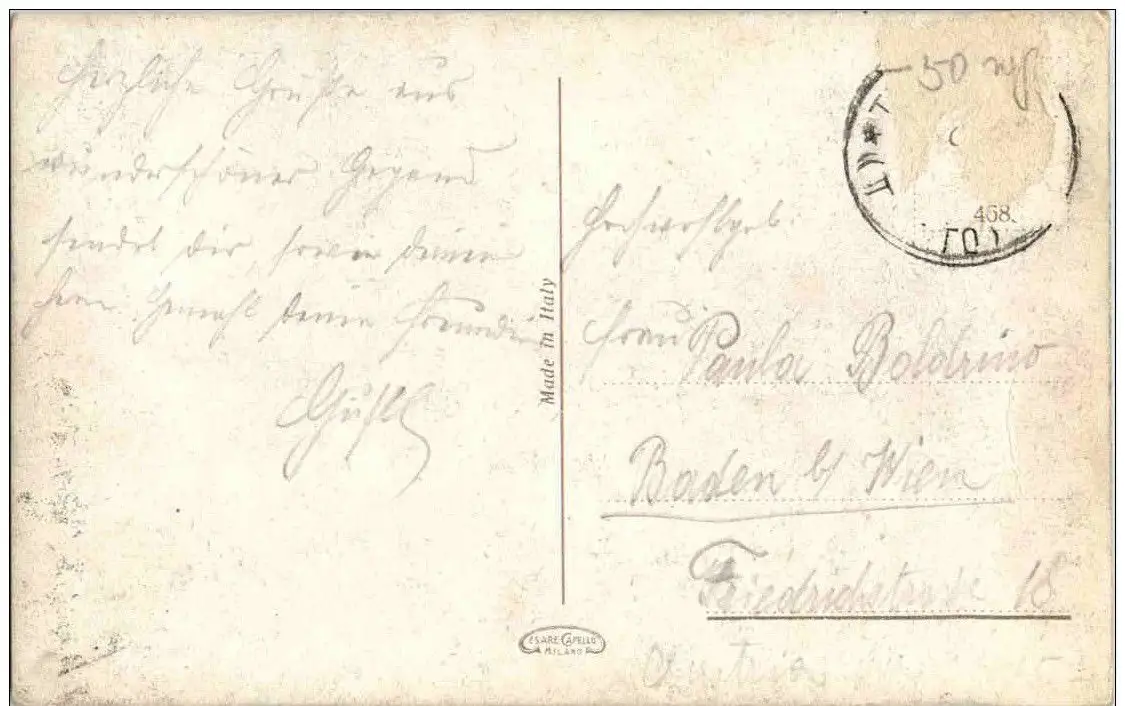 Herzliche Grüße aus
wunderschöner Gegend
sendet dir, sowie deinem
Herr Gemahl deine Freundin
Gustl
Made in Italy
CESARE CAPELLO
MILANO
50
468.
Hochwohlgeb.
Frau Paula Boldrino
Baden b/ Wien
Friedrichstraße 18
Austria